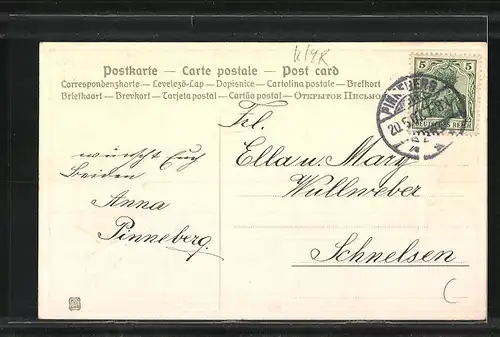 Postkarte — Carte postale — Post card
Correspondenzkarte — Levelező-Lap — Dopisnice — Cartolina postale — Brefkort
Briefkaart — Brevkort — Tarjeta postal — Cartão postal — Открытое Письмо
5 5
DEUTSCHES REICH
Frl.
Ella u. Mary
Wullweber
Schnelsen
wünscht Euch
Beiden
Anna
Pinneberg.
C